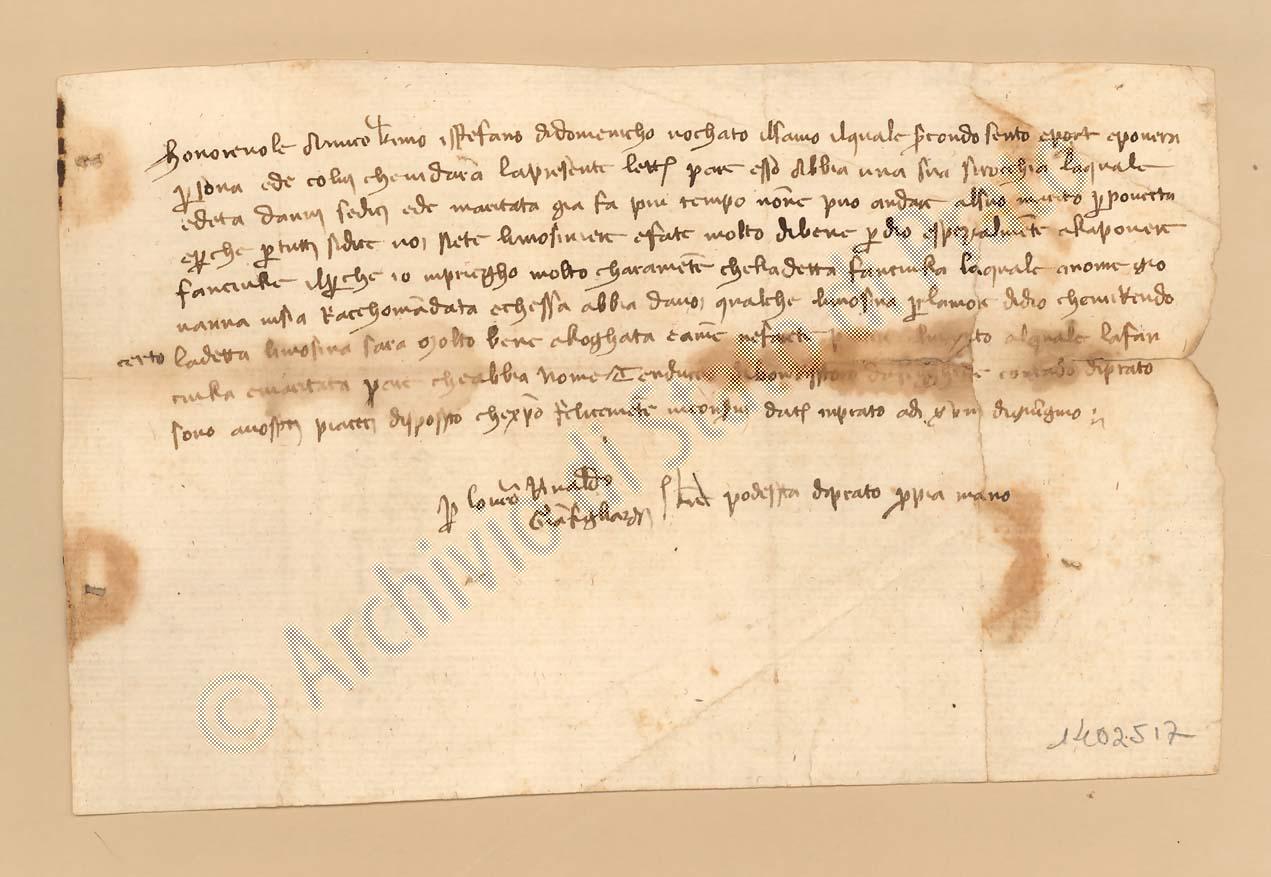 Honorevole Amico k.imo istefano didomenicho vochato ilsamo ilquale secondo sento e povera
persona ede colui chevidarà lapresente lettera pare esso abbia una sua sirocchia laquale
edeta danni sedici ede maritata gia fa piu tempo none puo andare alsuo marito per poverta
eperche pertutti sidice voi siete limosiniere efate molto dibene per dio espezialmente alapovere
fanciulle ilperche io viprieghо molto charamente chella detta fanciulla laquale a nome gio
vanna visia racchomandata echessa abbia davoi qualche limosina perlamore didio chevirendo
certo ladetta limosina sara molto bene alloghata alquale lafan
ciulla emaritata pare cheabbia nome contado diprato
sono avostri piaceri disposto chexpo felicemente data inprato adi xviii digiugno
per lovostro Rinaldo
Gianfigliazzi podesta diprato propia mano
1402517
© Archivio di Stato di Prato